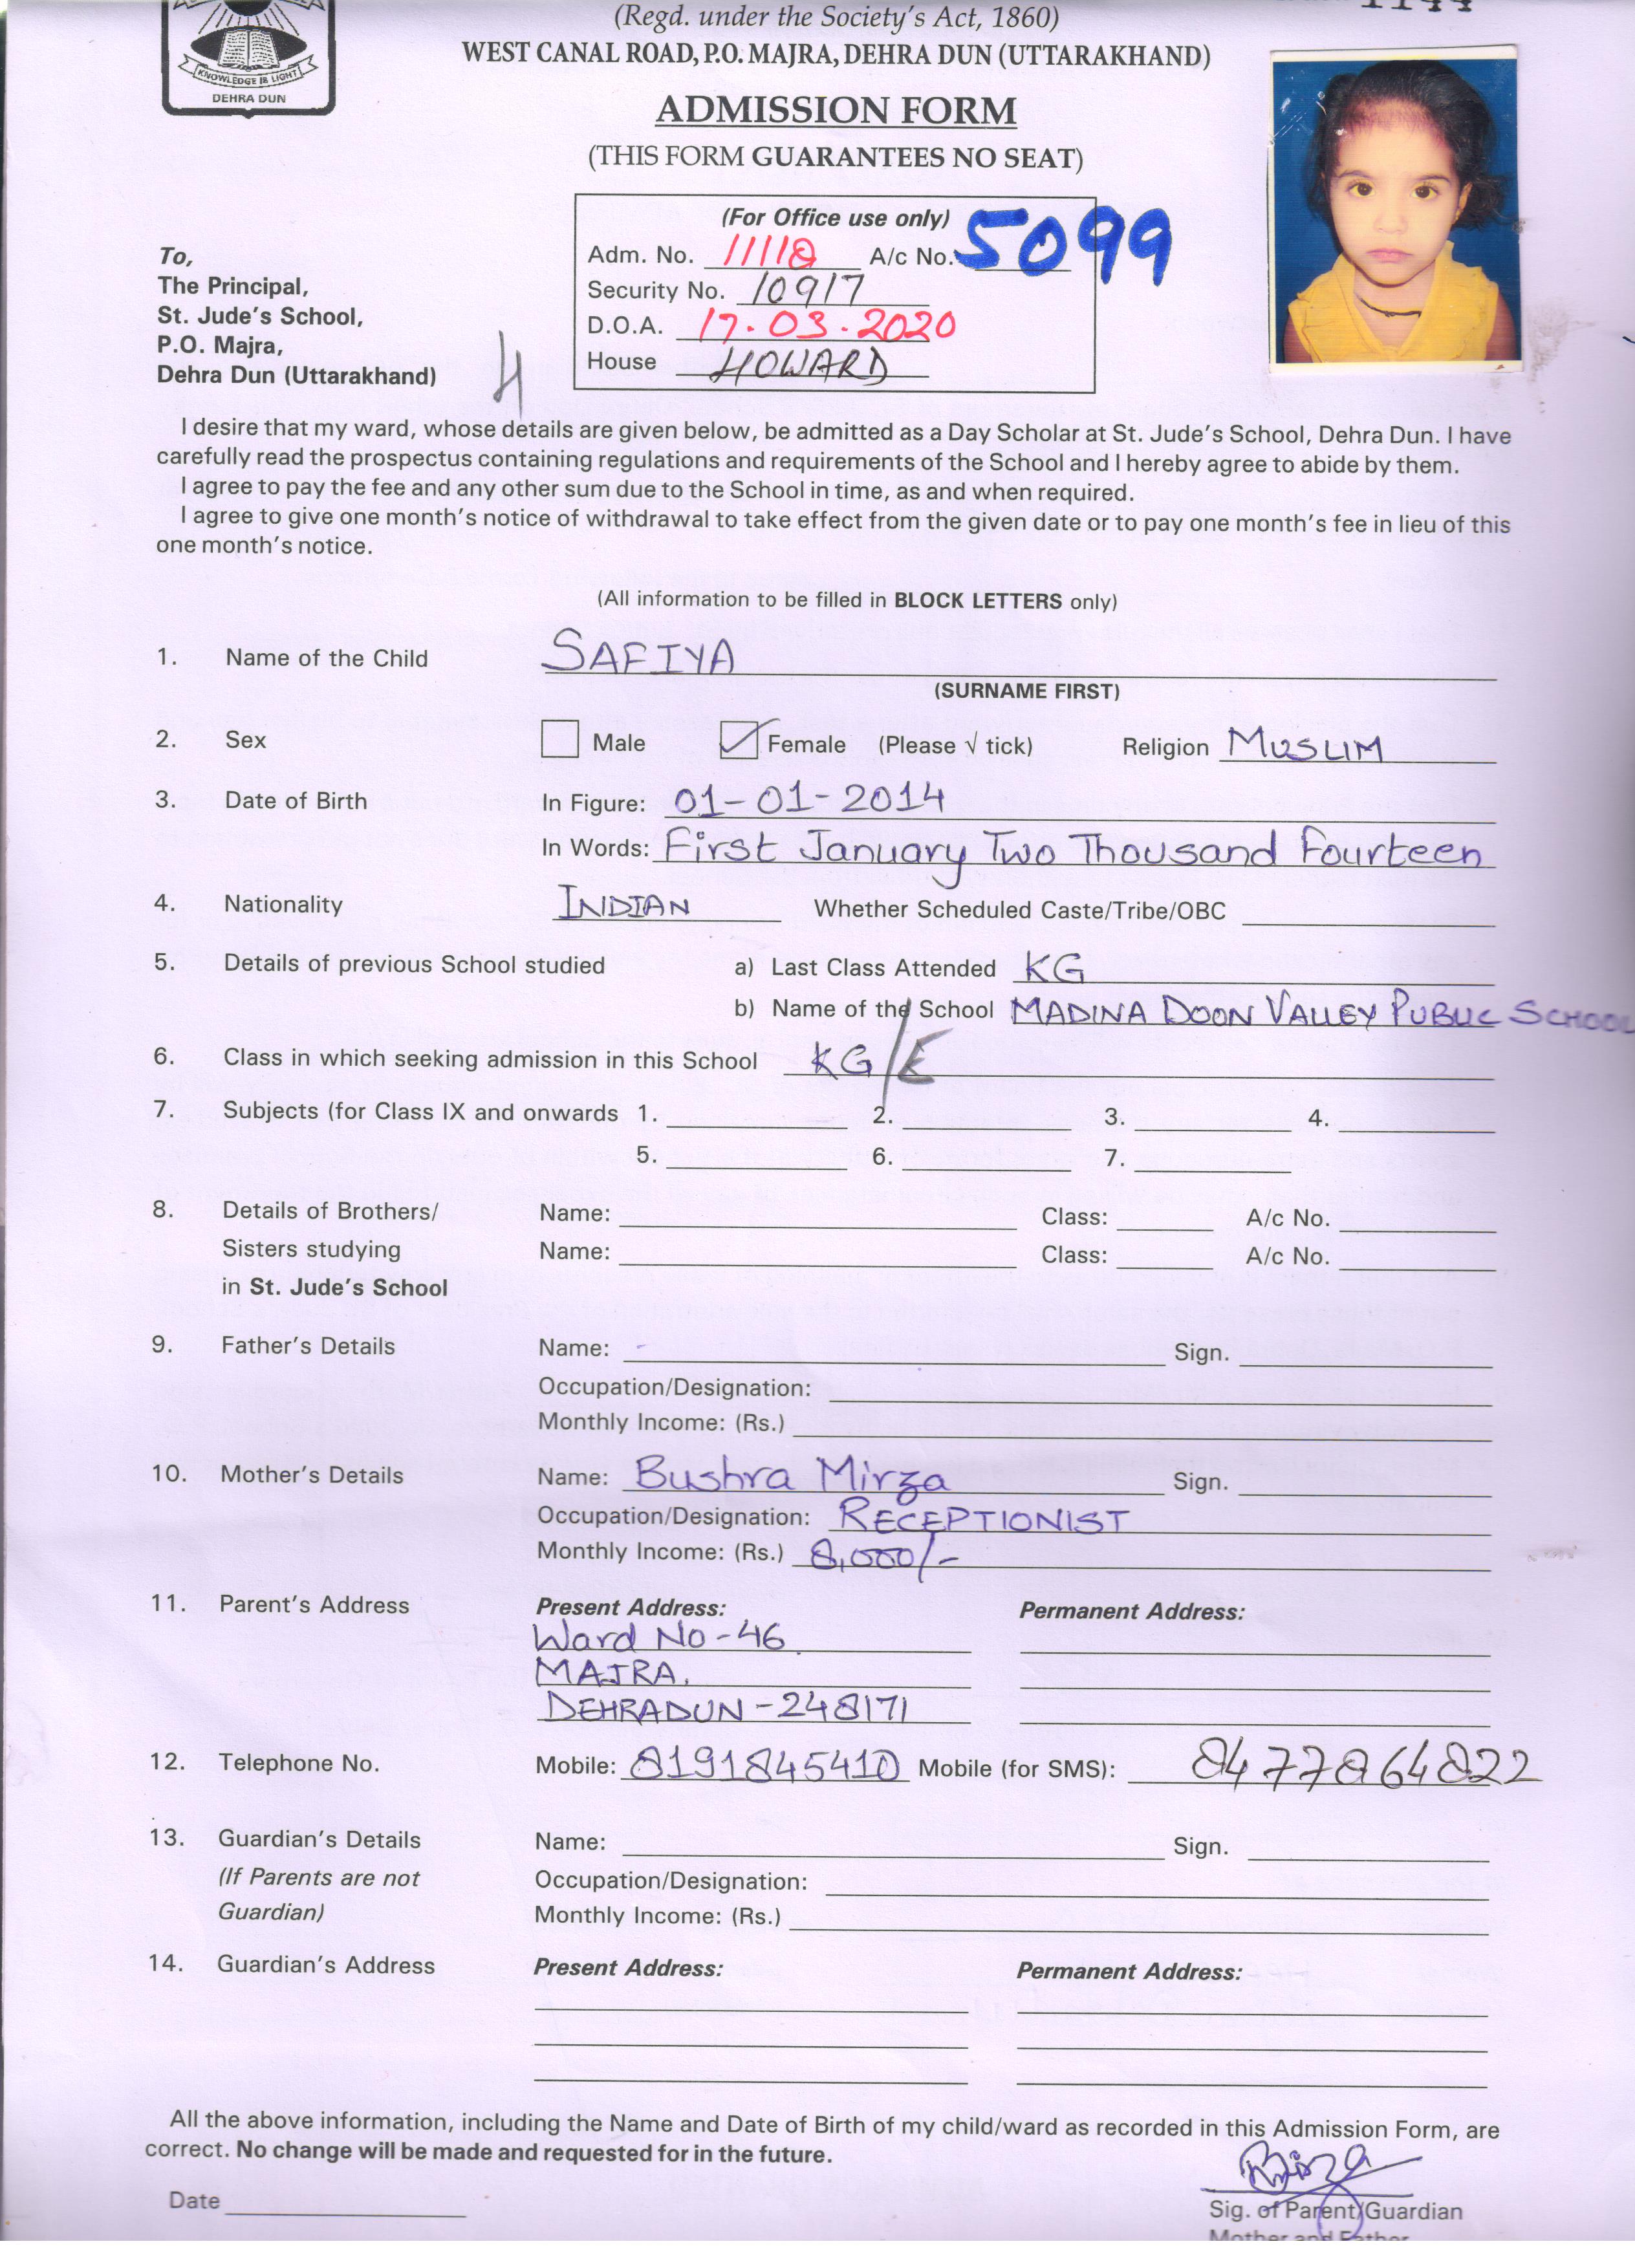 (Regd. under the Society's Act, 1860)
WEST CANAL ROAD, P.O. MAJRA, DEHRA DUN (UTTARAKHAND)
KNOWLEDGE IS LIGHT
DEHRA DUN
ADMISSION FORM
(THIS FORM GUARANTEES NO SEAT)
(For Office use only)
Adm. No. 11118 A/c No. 5099
Security No. 10917
D.O.A. 17.03.2020
House HOWARD
To,
The Principal,
St. Jude's School,
P.O. Majra,
Dehra Dun (Uttarakhand)
H
I desire that my ward, whose details are given below, be admitted as a Day Scholar at St. Jude's School, Dehra Dun. I have
carefully read the prospectus containing regulations and requirements of the School and I hereby agree to abide by them.
I agree to pay the fee and any other sum due to the School in time, as and when required.
I agree to give one month's notice of withdrawal to take effect from the given date or to pay one month's fee in lieu of this
one month's notice.
(All information to be filled in BLOCK LETTERS only)
1. Name of the Child SAFIYA
(SURNAME FIRST)
2. Sex Male Female (Please √ tick) Religion MUSLIM
3. Date of Birth In Figure: 01-01-2014
In Words: First January Two Thousand Fourteen
4. Nationality INDIAN Whether Scheduled Caste/Tribe/OBC
5. Details of previous School studied a) Last Class Attended KG
b) Name of the School MADINA DOON VALLEY PUBLIC SCHOOL
6. Class in which seeking admission in this School KG/E
7. Subjects (for Class IX and onwards 1. 2. 3. 4.
5. 6. 7.
8. Details of Brothers/ Name: Class: A/c No.
Sisters studying Name: Class: A/c No.
in St. Jude's School
9. Father's Details Name: - Sign.
Occupation/Designation:
Monthly Income: (Rs.)
10. Mother's Details Name: Bushra Mirza Sign.
Occupation/Designation: RECEPTIONIST
Monthly Income: (Rs.) 8,000/-
11. Parent's Address Present Address: Permanent Address:
Ward No-46
MAJRA.
DEHRADUN-248171
12. Telephone No. Mobile: 8191845410 Mobile (for SMS): 8477864822
13. Guardian's Details Name: Sign.
(If Parents are not Occupation/Designation:
Guardian) Monthly Income: (Rs.)
14. Guardian's Address Present Address: Permanent Address:
All the above information, including the Name and Date of Birth of my child/ward as recorded in this Admission Form, are
correct. No change will be made and requested for in the future.
Date
Sig. of Parent/Guardian
Mother and Father